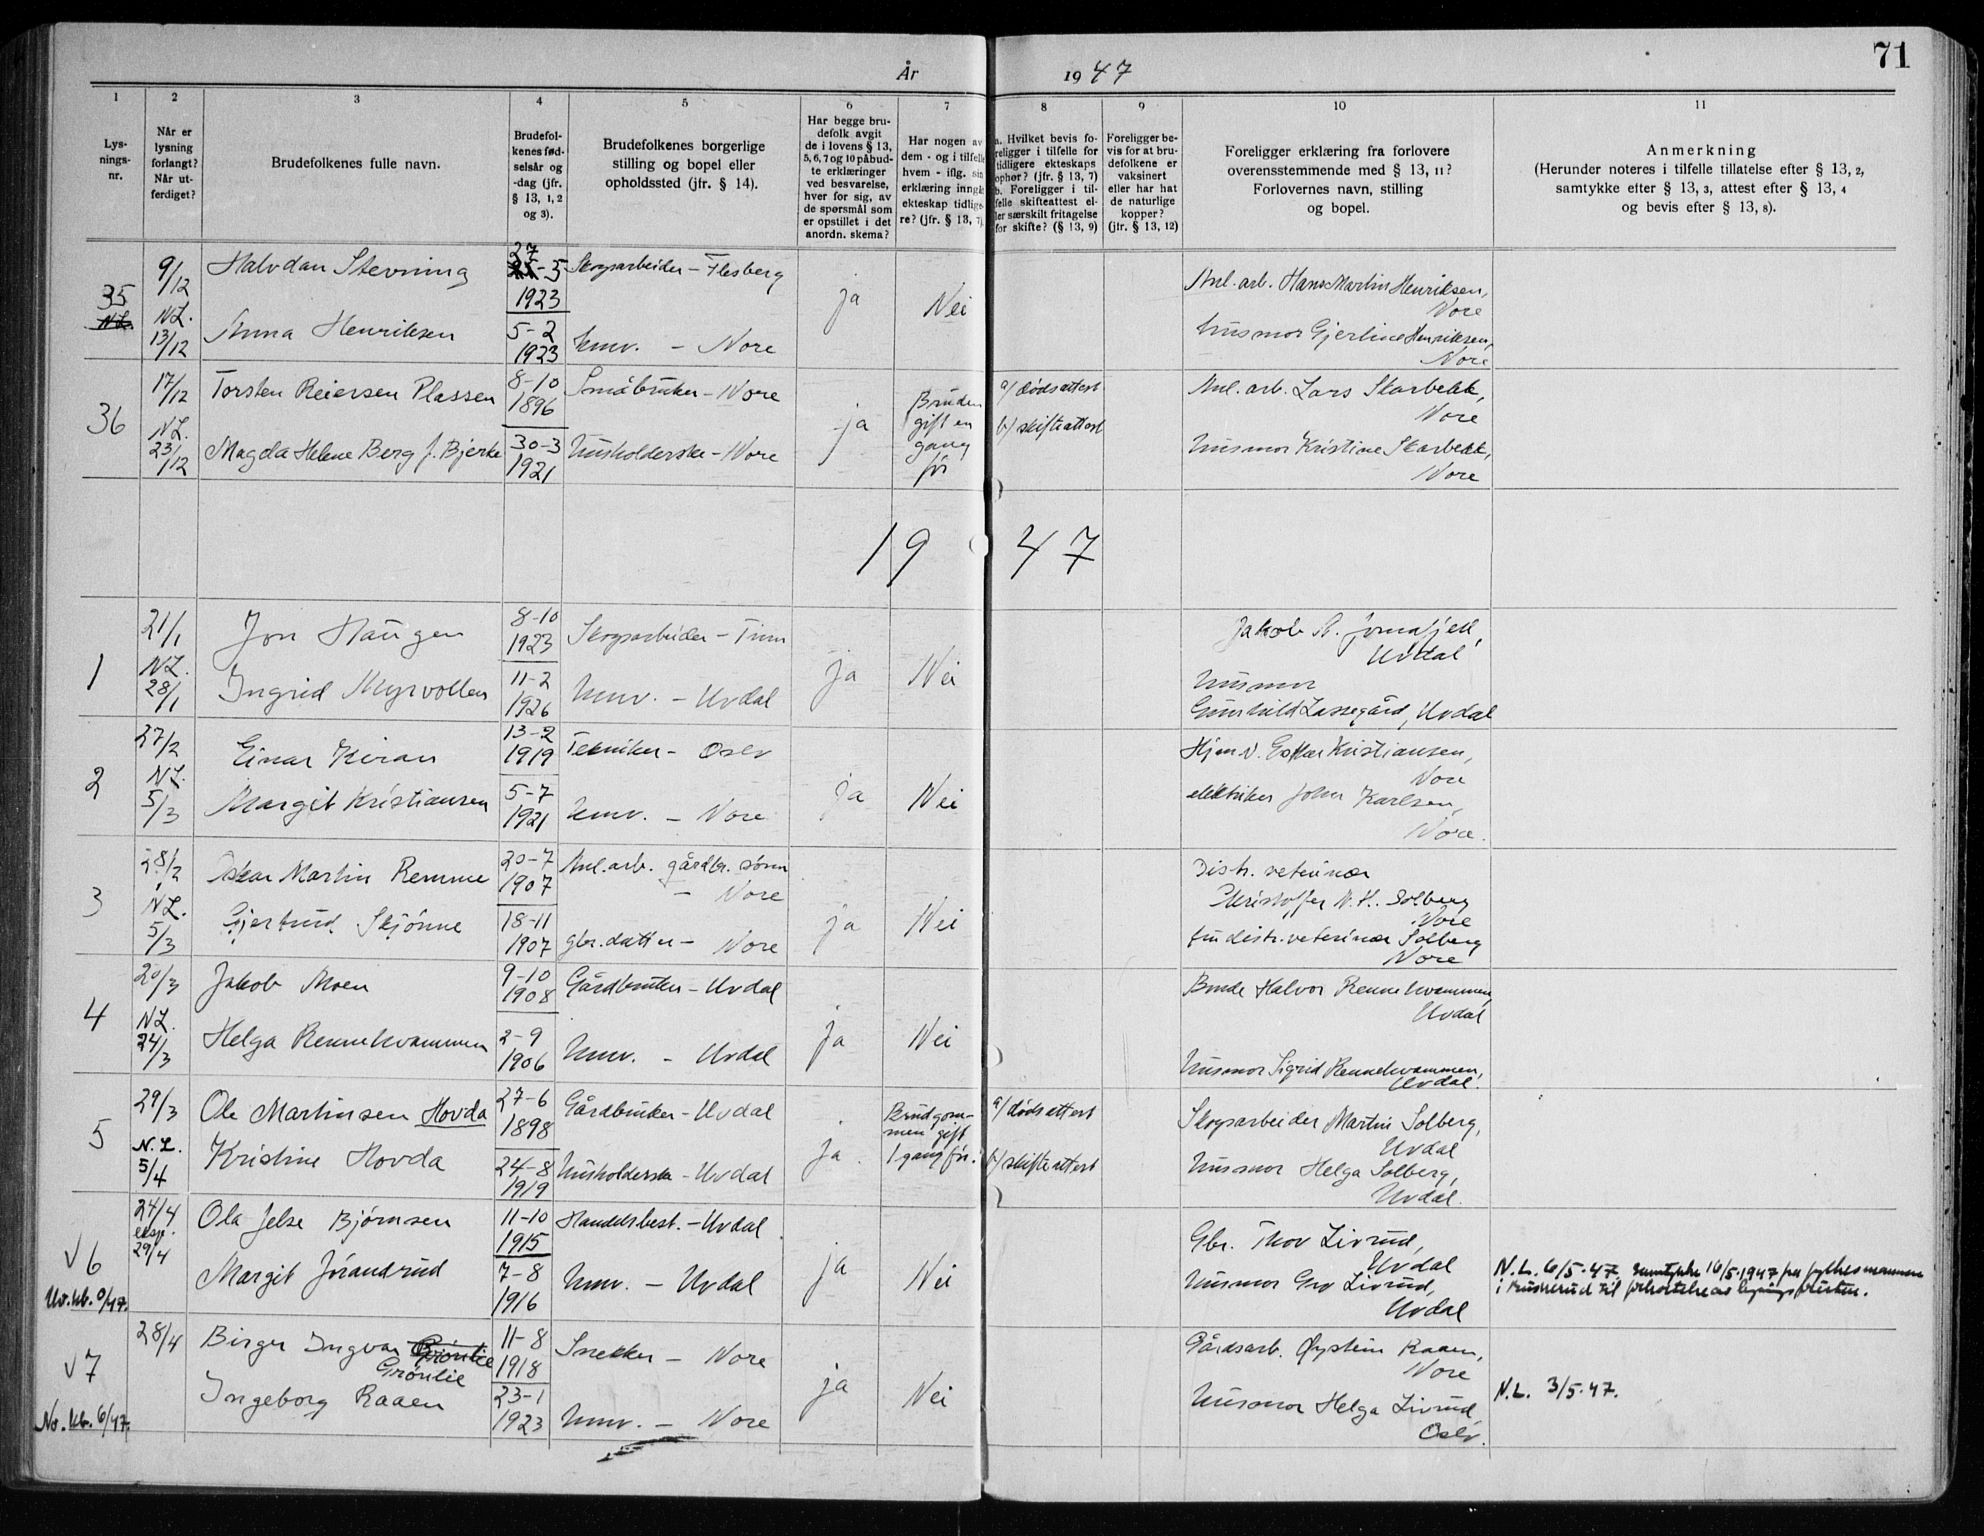 71
År 1947
1 2 3 4 5 6 7 8 9 10 11
Lys-
nings-
nr.
Når er
lysning
forlangt?
Når ut-
ferdiget?
Brudefolkenes fulle navn.
Brudefol-
kenes fød-
selsår og
-dag (jfr.
§ 13, 1, 2
og 3).
Brudefolkenes borgerlige
stilling og bopel eller
opholdssted (jfr. § 14).
Har begge bru-
defolk avgit
de i lovens § 13,
5, 6, 7 og 10 påbud-
te erklæringer
ved besvarelse,
hver for sig, av
de spørsmål som
er opstillet i det
anordn. skema?
Har nogen av
dem - og i tilfelle
hvem - iflg. sin
erklæring inngått
ekteskap tidlige-
re? (jfr. § 13, 7)
a. Hvilket bevis fo-
religger i tilfelle for
tidligere ekteskaps
ophør? (jfr. § 13, 7)
b. Foreligger i til-
felle skifteattest el-
ler særskilt fritagelse
for skifte? (§ 13, 9)
Foreligger be-
vis for at bru-
defolkene er
vaksinert
eller har hat
de naturlige
kopper?
(jfr. § 13, 12)
Foreligger erklæring fra forlovere
overensstemmende med § 13, 11?
Forlovernes navn, stilling
og bopel.
Anmerkning
(Herunder noteres i tilfelle tillatelse efter § 13, 2,
samtykke efter § 13, 3, attest efter § 13, 4
og bevis efter § 13, 8).
35
N.L.
9/12
N.L.
13/12
Halvdan Stevning
27
-5
1923
Skogsarbeider - Flesberg
Anna Henriksen
5-2
1923
Umv. - Nore
ja
Nei
Anl. arb. Hans Martin Henriksen,
Nore
Husmor Gjertine Henriksen,
Nore
36
17/12
N.L.
23/12
Torsten Reiersen Plassen
8-10
1896
Småbruker - Nore
Magda Helene Berg f. Bjerke
30-3
1921
Husholderske - Nore
ja
Bruden
gift en
gang
før
a/ dødsattest
b/ skifteattest
Anl. arb. Lars Skarbekk,
Nore
Husmor Kristine Skarbekk,
Nore
1947
1
21/1
N.L.
28/1
Jon Haugen
8-10
1923
Skogsarbeider - Tinn
Ingrid Myrvollen
11-2
1926
Umv. - Uvdal
ja
Nei
Jakob A. Jonsfjell,
Uvdal
Husmor
Gunhild Lassegård, Uvdal
2
27/2
N.L.
5/3
Einar Kiran
13-2
1919
Tekniker - Oslo
Margit Kristiansen
5-7
1921
Umv. - Nore
ja
Nei
Hjm.v. Eskar Kristiansen,
Nore
elektriker John Karlsen,
Nore.
3
28/2
N.L.
5/3
Oskar Martin Remme
20-7
1907
Anl. arb. gårdbr. sønn
- Nore
Gjertrud Skjønne
18-11
1907
gbr. datter - Nore
ja
Nei
Distr. veterinær
Kristoffer N. H. Solberg
Nore
fru distr. veterinær Solberg
Nore
4
20/3
N.L.
24/3
Jakob Moen
9-10
1908
Gårdbruker - Uvdal
Helga Rennehvammen
2-9
1906
Umv. - Uvdal
ja
Nei
Bonde Halvor Rennehvammen,
Uvdal
Husmor Sigrid Rennehvammen,
Uvdal
5
29/3
N.L.
5/4
Ole Martinsen Hovda
27-6
1898
Gårdbruker - Uvdal
Kristine Hovda
24-8
1919
Husholderske - Uvdal
ja.
Brudgom-
men gift
1 gang før.
a/ dødsattest
b/ skifteattest
Skogsarbeider Martin Solberg,
Uvdal
Husmor Helga Solberg,
Uvdal.
V 6
Uv. kb. 9/47.
24/4
eksp.
29/4
Ola Jelse Bjørnsen
11-10
1915
Handelsbest. - Uvdal
Margit Jørandrud
7-8
1916
Umv. - Uvdal
ja
Nei
Gbr. Thov Livrud,
Uvdal
Husmor Gro Livrud,
Uvdal
N.L. 6/5-47 samtykke 16/5.1947 fra fylkesmannen
i Buskerud til forkortelse av lysningsfristen.
V 7
No. kb. 6/47.
28/4
Birger Ingvar Grønlie
Grønlie
11-8
1918
Snekker - Nore
Ingeborg Raaen
23-1
1923
Umv. - Nore
ja
Nei
Gårdsarb. Øystein Raaen,
Nore
Husmor Helga Livrud,
Oslo.
N.L. 3/5-47.